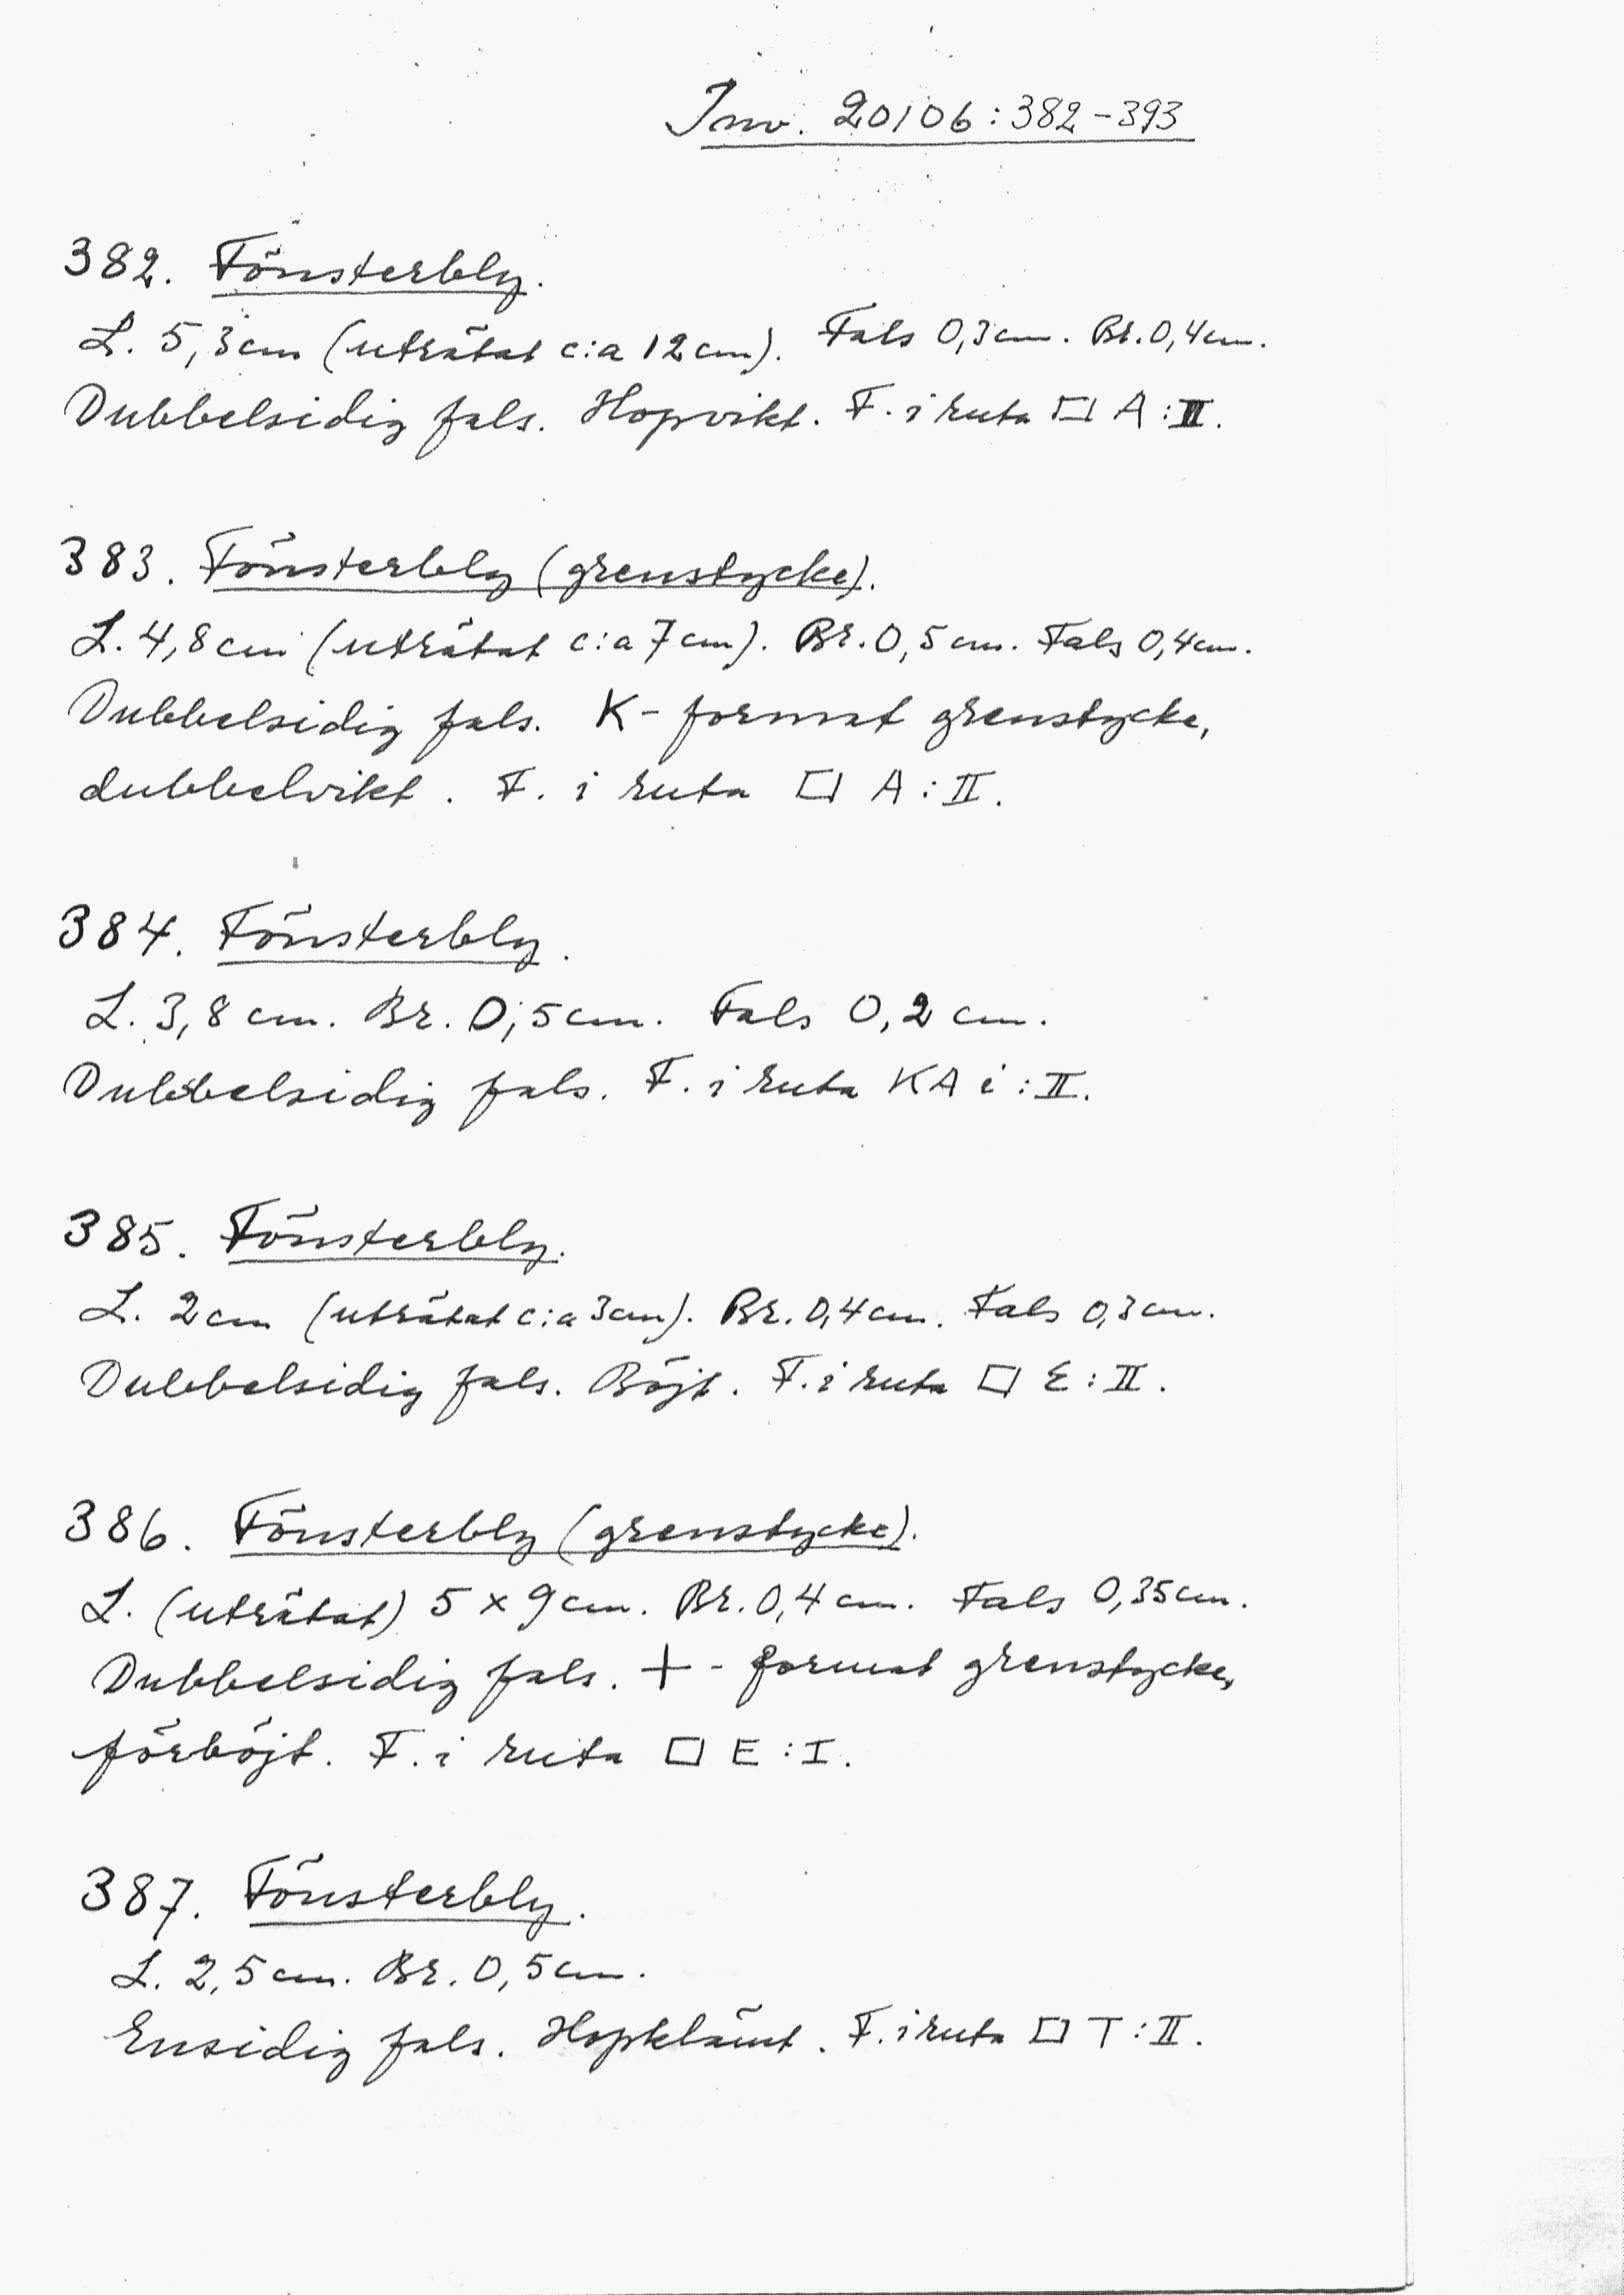 Inv. 20106:382-393
382. Fönsterbly.
L. 5,3 cm (uträtat c:a 12 cm). Fals 0,3 cm. Br. 0,4 cm.
Dubbelsidig fals. Hopvikt. F. i ruta □ A:II.
383. Fönsterbly (grenstycke).
L. 4,8 cm (uträtat c:a 7 cm). Br. 0,5 cm. Fals 0,4 cm.
Dubbelsidig fals. K-format grenstycke,
dubbelvikt. F. i ruta □ A:II.
384. Fönsterbly.
L. 3,8 cm. Br. 0,5 cm. Fals 0,2 cm.
Dubbelsidig fals. F. i ruta KA i:II.
385. Fönsterbly.
L. 2 cm (uträtat c:a 3 cm). Br. 0,4 cm. Fals 0,3 cm.
Dubbelsidig fals. Böjt. F. i ruta □ E:II.
386. Fönsterbly (grenstycke).
L. (uträtat) 5 x 9 cm. Br. 0,4 cm. Fals 0,35 cm.
Dubbelsidig fals. +-format grenstycke,
förböjt. F. i ruta □ E:I.
387. Fönsterbly.
L. 2,5 cm. Br. 0,5 cm.
Ensidig fals. Hopklämt. F. i ruta □ T:II.